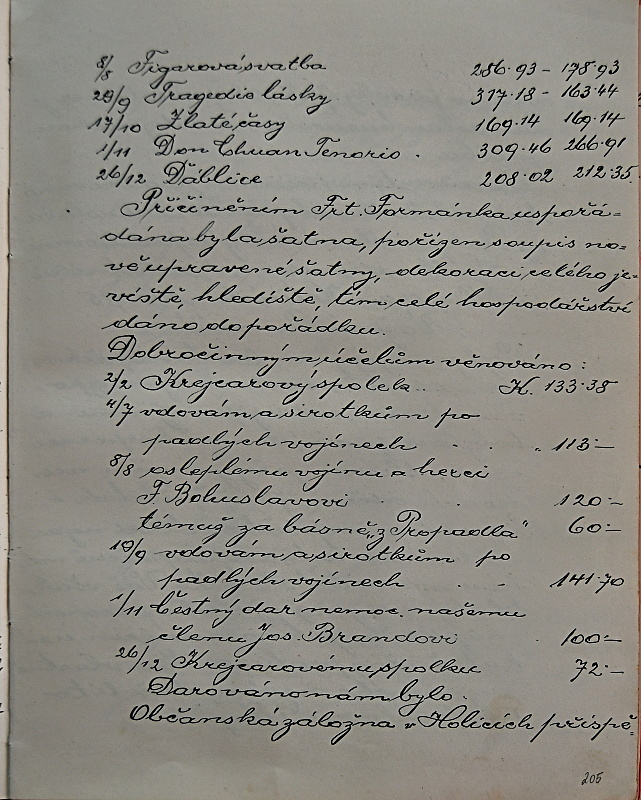 8/8 Figarova svatba 286·93 – 178·93
29/9 Tragedie lásky 317·18 – 163·44
17/10 Zlaté časy 169·14 169·14
1/11 Don Chuan Tenorio . 309·46 266·91
26/12 Ďáblice 208·02 212·35
Přičiněním Frt. Formánka uspořá-
dána byla šatna, pořízen soupis no-
vě upravené šatny, dekorací celého je-
viště, hlediště, tím celé hospodářství
dáno do pořádku.
Dobročinným účelům věnováno:
2/2 Krejcarový spolek .. K. 133·38
4/7 vdovám a sirotkům po
padlých vojínech . . „ 113·–
8/8 osleplému vojínu a herci
F Bohuslavovi . . 120·–
témuž za básně „z Propadla" 60·–
19/9 vdovám a sirotkům po
padlých vojínech . . 141·70
1/11 Čestný dar nemoc. našemu
členu Jos. Brandovi . 100·–
26/12 Krejcarovému spolku 72·–
Darováno nám bylo.
Občanská záložna v Holicích přispě-
205